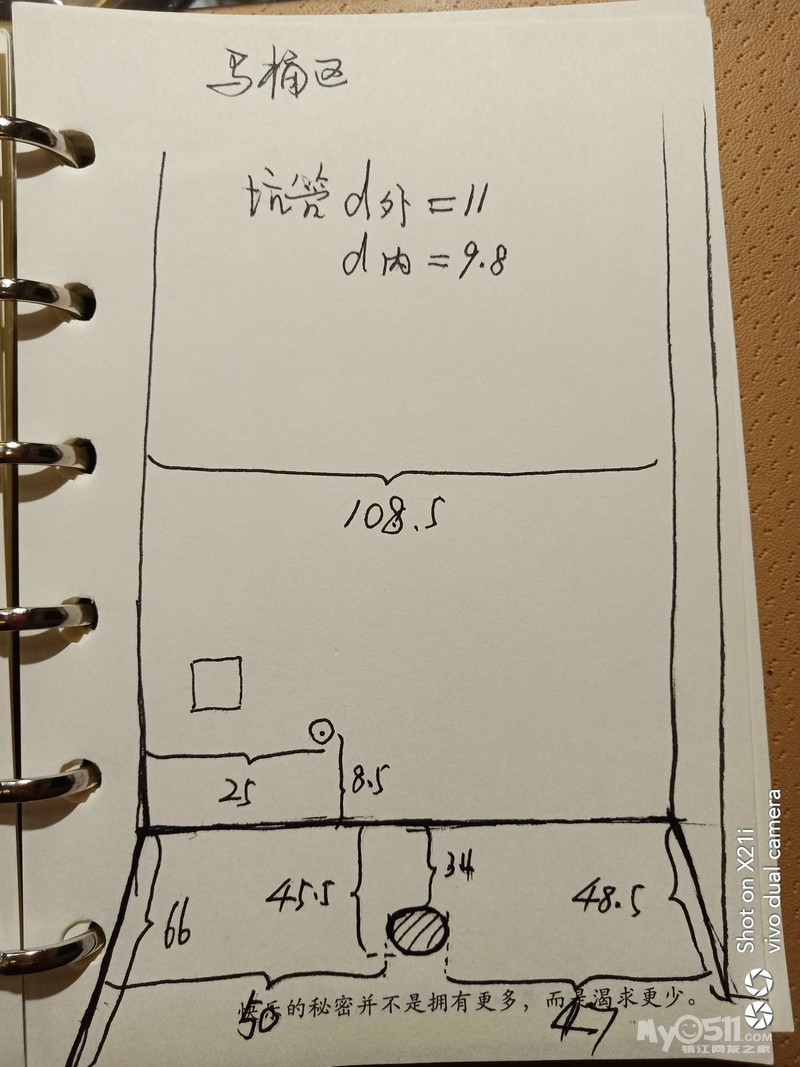 马桶区
坑管 d外=11
d内=9.8
108.5
25
8.5
66
45.5
34
48.5
50
47
的秘密并不是拥有更多，而是渴求更少。
Shot on X21i
vivo dual camera
My0511.com
镇江网友之家